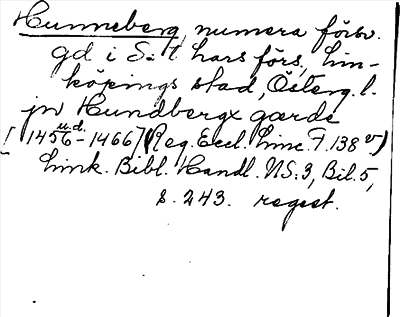 Hunneberg, numera försv.
gd i S:t Lars förs, Lin-
köpings stad, Österg. l.
jn Hundbergx gærde
u.d.
[1456-1466] (Reg. Eccl. Linc. F. 138 v)
Link. Bibl. Handl. NS:3, Bil. 5,
s. 243. regest.